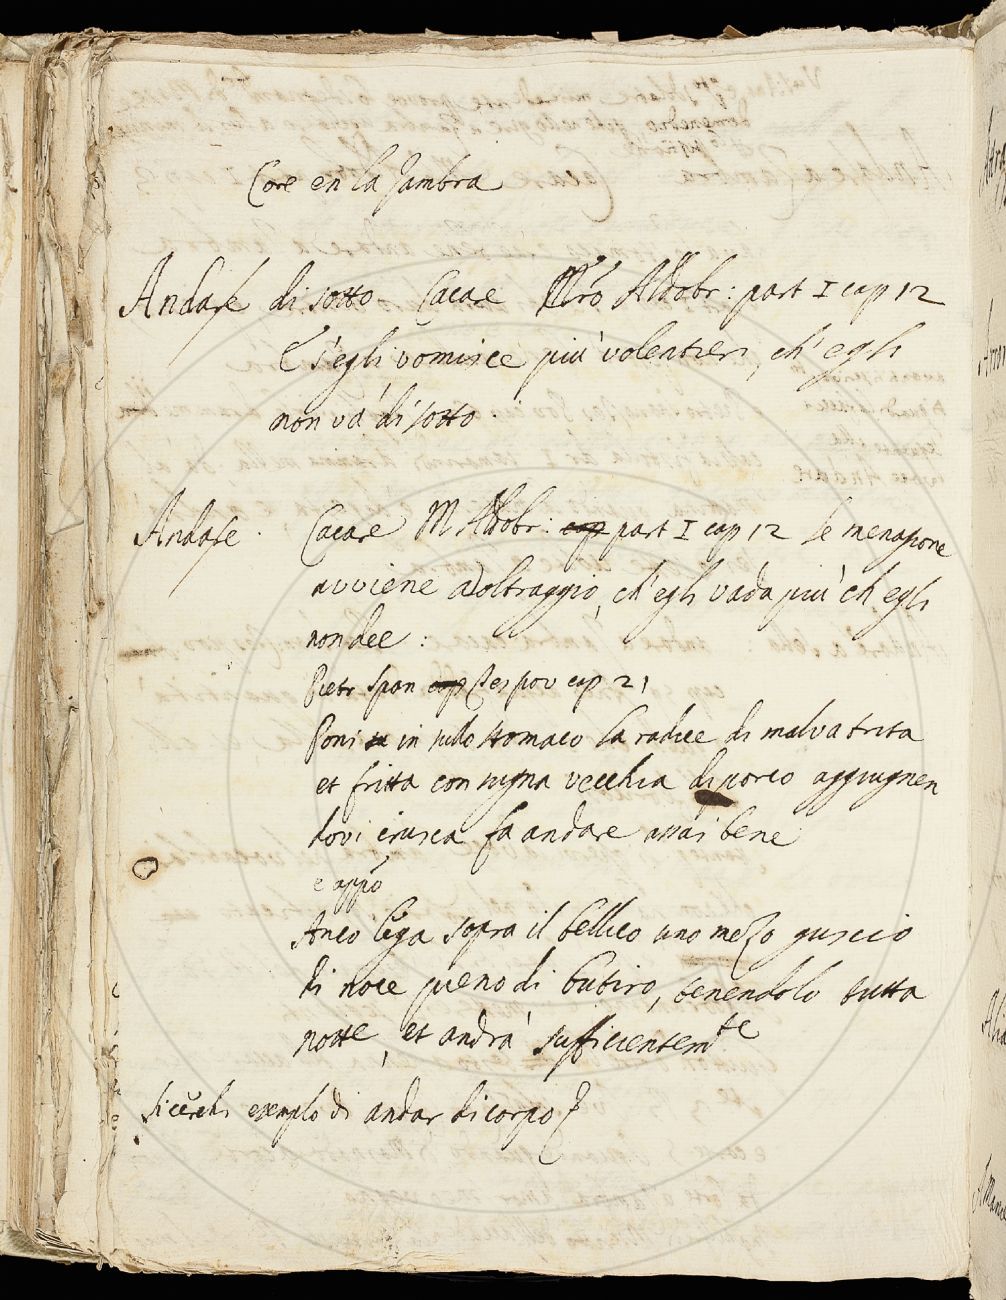 Core en la Zambra
Andare di sotto. Cacare Mro Aldobr: part I cap 12
E s'egli vomisce più volentieri, ch'egli
non và di sotto
Andare. Cacare M Aldobr: cap part I cap 12 se menagione
avviene adoltraggio, ch'egli vada più ch'egli
non dee:
Pietr Span cap cap 21
Poni in sullo stomaco la radice di malva trita
et fritta con sugna vecchia di porco aggiugnen
dovi crusca fa andare assai bene
e appo
Anco lega sopra il bellico uno mezo guscio
di noce pieno di butiro, tenendolo tutta
notte, et andrà sufficientemte
Si cerchi esemplo di andar di corpo